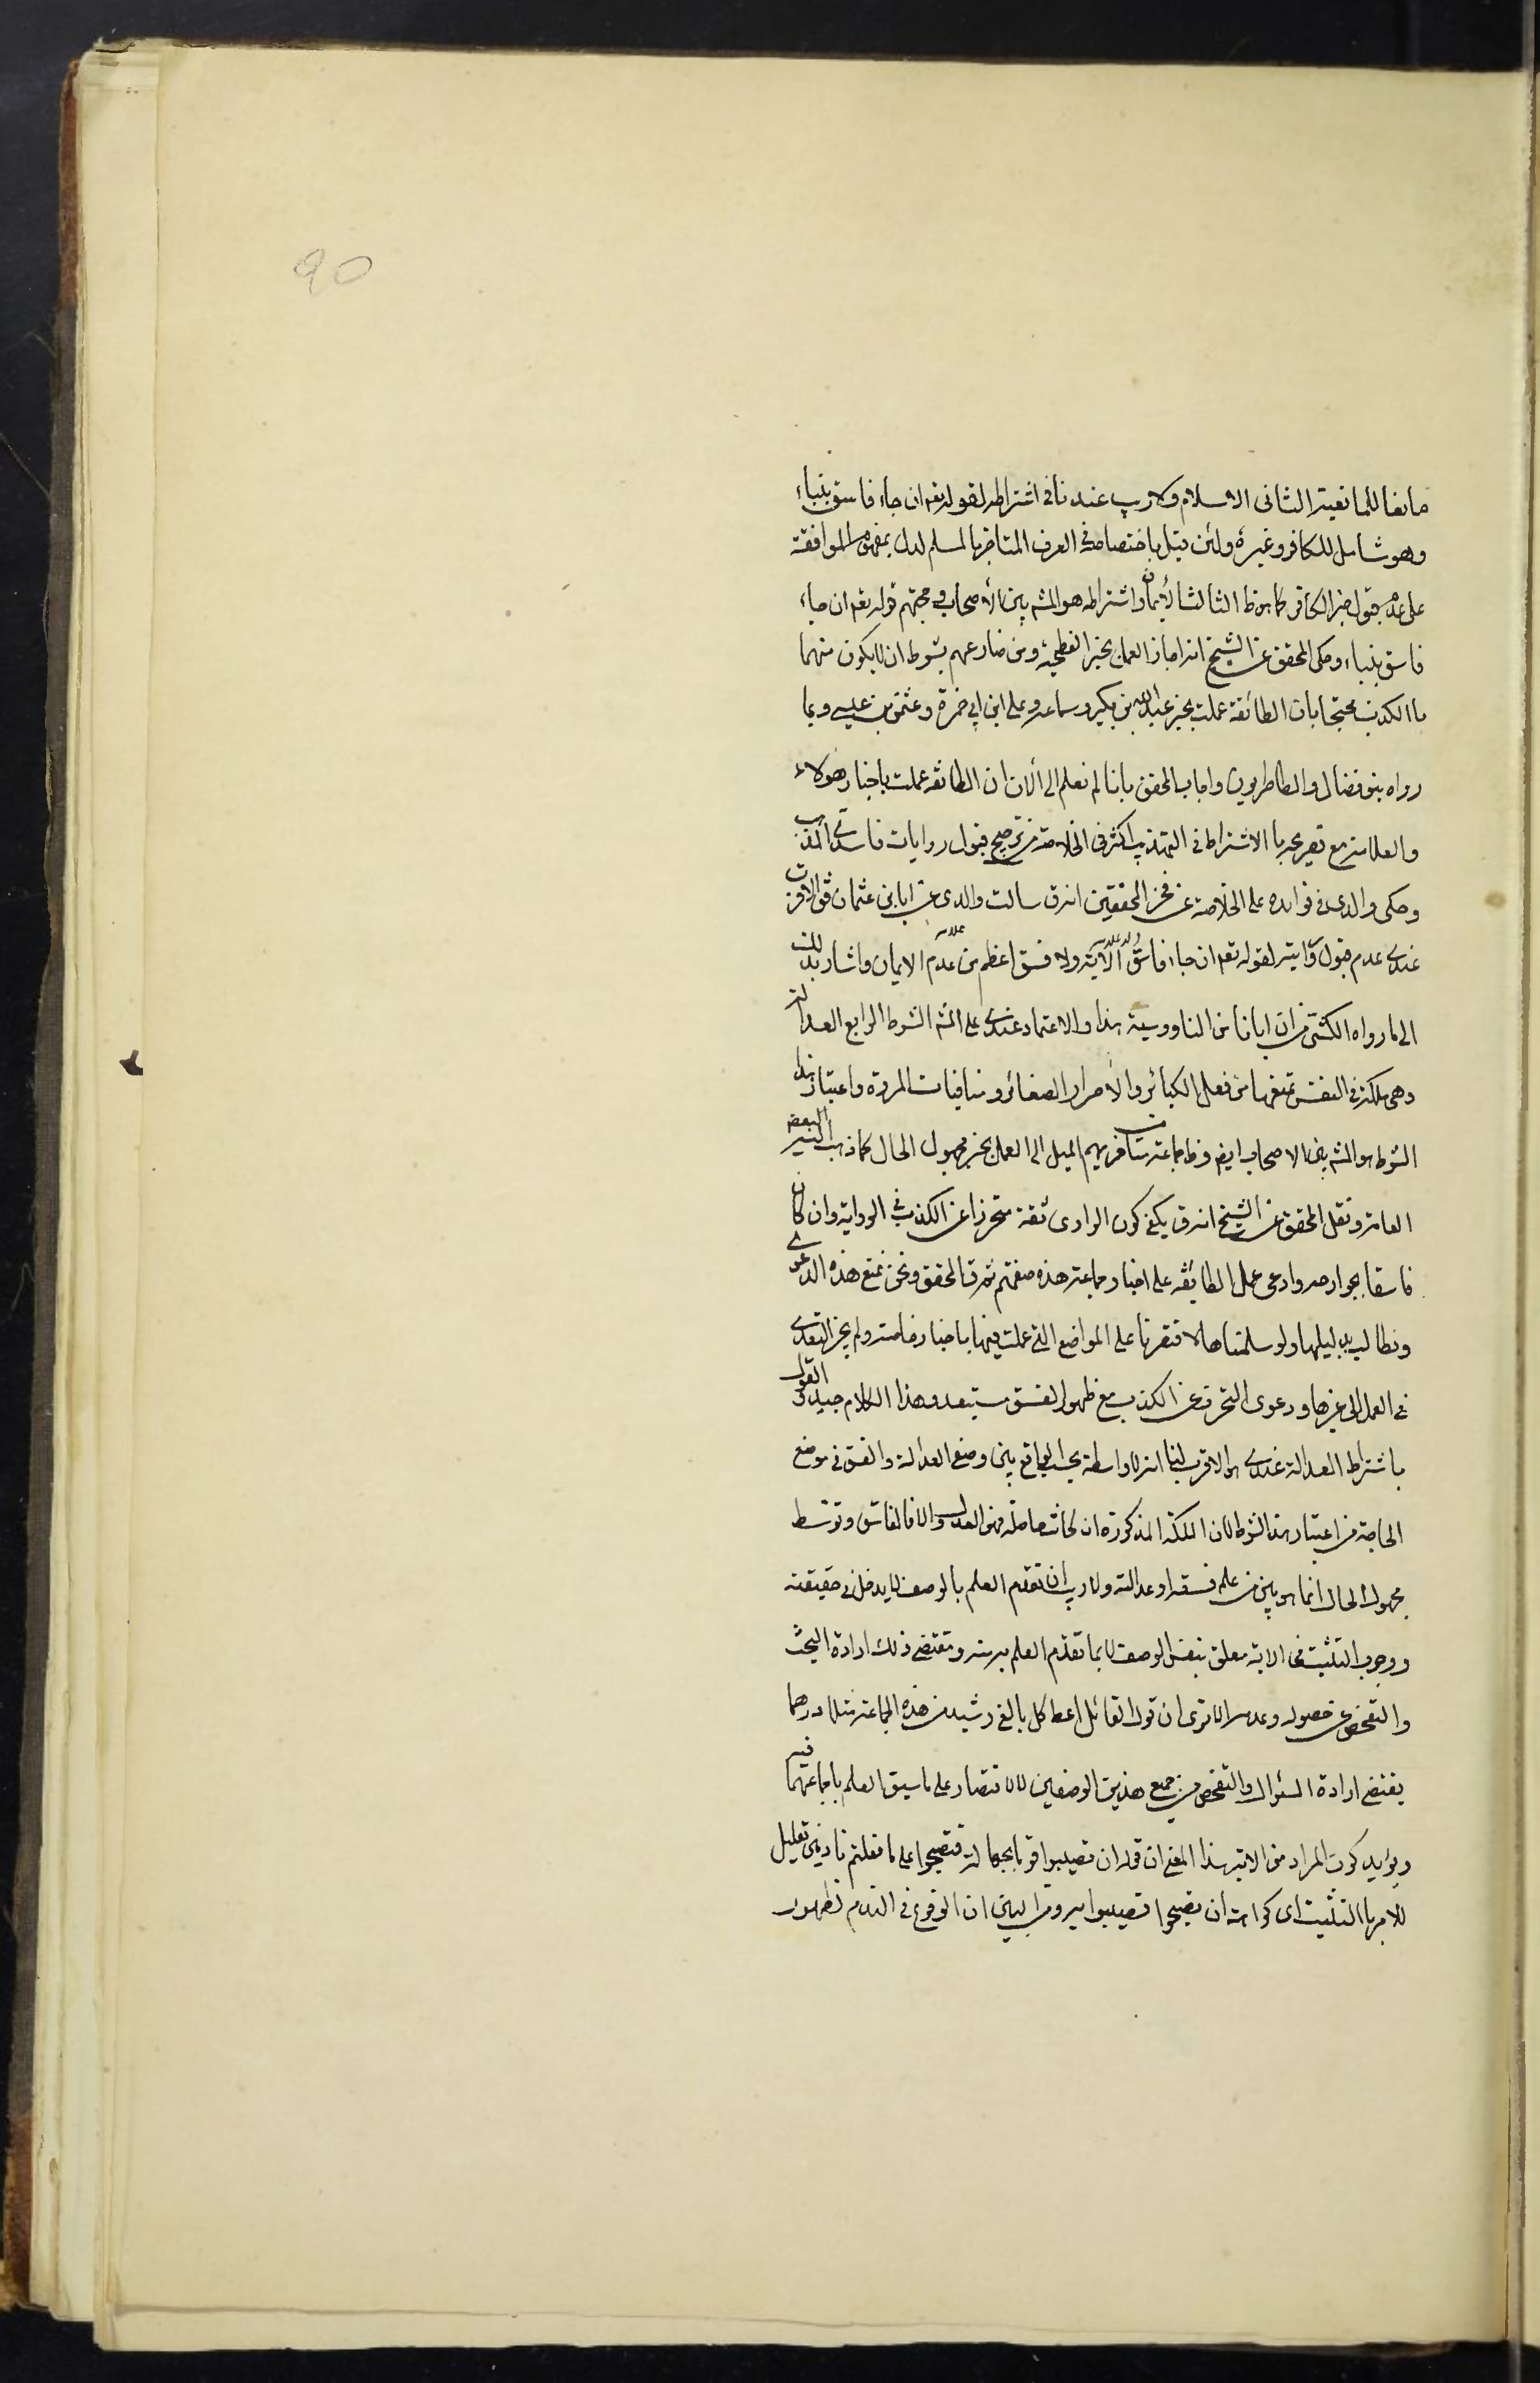 90
مانعا للمانعية الثانى الاسلام ولا ريب عندنا فى اشتراطه لقوله تعم ان جاء فاسق بنباء
وهو شامل للكافر وغيره ولئن قيل باختصاصه فى العرف المتاخر بالمسلم لدل بمفهوم الموافقة
على عدم قبول خبر الكافر كما هو ظ الثالث الأيمان واشتراطه هو المشه بين الأصحاب وحجتهم قوله تعم ان جاء
فاسق بنباء وحكى المحقق عن الشيخ انه اجاز العمل بخبر الفطحية ومن ضارعهم بشرط ان لا يكون متهما
با الكذب محتجا بان الطائفة عملت بخبر عبد الله بن بكير وسماعه وعلى ابن ابى حمزة وعثمن بن عيسى وبما
رواه بنو فضال والطاطريون واجاب المحقق بانا لم نعلم الى الان ان الطائفه عملت باخبار هولاء
والعلامه مع تصريحه با الاشتراط فى التهذيب اكثر فى الخلاصة من ترجيح قبول روايات فاسدى المذهب
وحكى والدى فى فوايده على الخلاصة عن فخر المحققين انه ق سالت والدى عن ابان بن عثمان فق الاقرب
عندى عدم قبول روايته لقوله تعم ان جاء فاسق الآية ولا فسق اعظم من عدم الايمان واشار بذلك
الى ما رواه الكشى من ان ابانا من الناووسية هذا والاعتماد عندى على المشه الشرط الرابع العدالة
وهى ملكة فى النفس تمنعها من فعل الكبائر والأصرار الصغائر ومنافيات المروة واعتبار هذا
الشرط هو المشه بين الاصحاب ايض وظ جماعة من متاخريهم الميل الى العمل بخبر مجهول الحال كما ذهب اليه بعض
العامة ونقل المحقق عن الشيخ انه ق يكفى كون الراوى ثقة متحرزا عن الكذب فى الرواية وان كان
فاسقا بجوارحه وادعى عمل الطايفه على اخبار جماعة هذه صفتهم ثم ق المحقق ونحن نمنع هذه الدعوى
ونطالب بدليلها ولو سلمناها لاقتصرنا على المواضع التى عملت فيها باخبار خاصة ولم يجز التعدى
فى العمل الى غيرها ودعوى التحرز عن الكذب مع ظهور الفسق مستبعد وهذا الكلام جيد والقول
باشتراط العدالة عندى هو الاقرب لنا انه لا واسطة بحسب الواقع بين وصفى العدالة والفسق فى موضع
الحاجة من اعتبار هذا الشرط لان الملكة المذكورة ان كانت حاصلة فهو العدل والا فالفاسق وتوسط
مجهول الحال انما هو بين من علم فسقه او عدالته ولا ريب ان تقدم العلم بالوصف لا يدخل فى حقيقته
ووجوب التثبت فى الاية معلق بنفس الوصف لا بما تقدم العلم به منه ومقتضى ذلك ارادة البحث
والتفحص عن حصوله وعدمه الا ترى ان قول القائل اعط كل بالغ رشيد من هذه الجماعة مثلا درهما
يقتضى ارادة السئوال والتفحص عن جميع هذين الوصفين لا الاقتصار على ما سبق العلم باجماعهما فيه
ويوايد كون المراد من الاية هذا المعنى ان قوله ان تصيبوا قوما بجهالة فتصبحوا على ما فعلتم نادمين تعليل
للامر با التثبت اى كراهة ان تصيبوا ومن البين ان الوقوع فى الندم لظهور